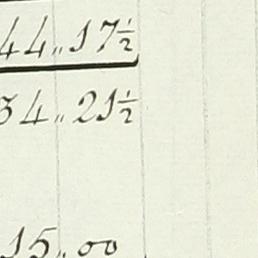 44„17½
34„21½
15„00